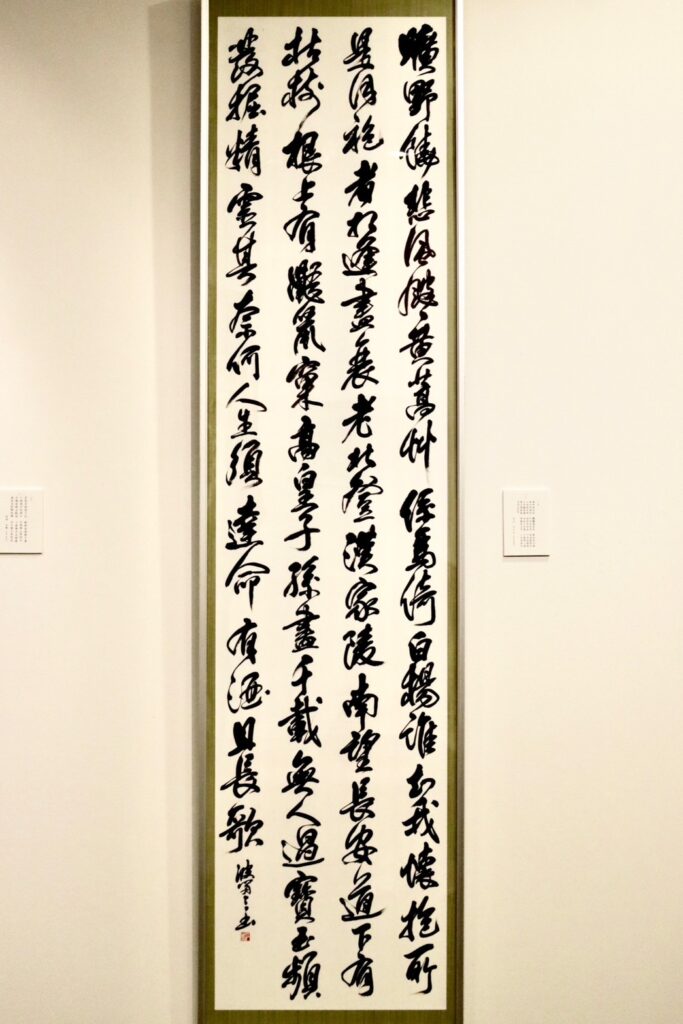 曠野饒悲風颼々黃蒿艸係馬倚白楊誰知我懷抱所
是同袍者相逢盡衰老北登漢家陵南望長安道下有
枯樹根上有鼯鼠窠高皇子孫盡千載無人過寶玉頻
發掘精靈其奈何人生須達命有酒且長歌